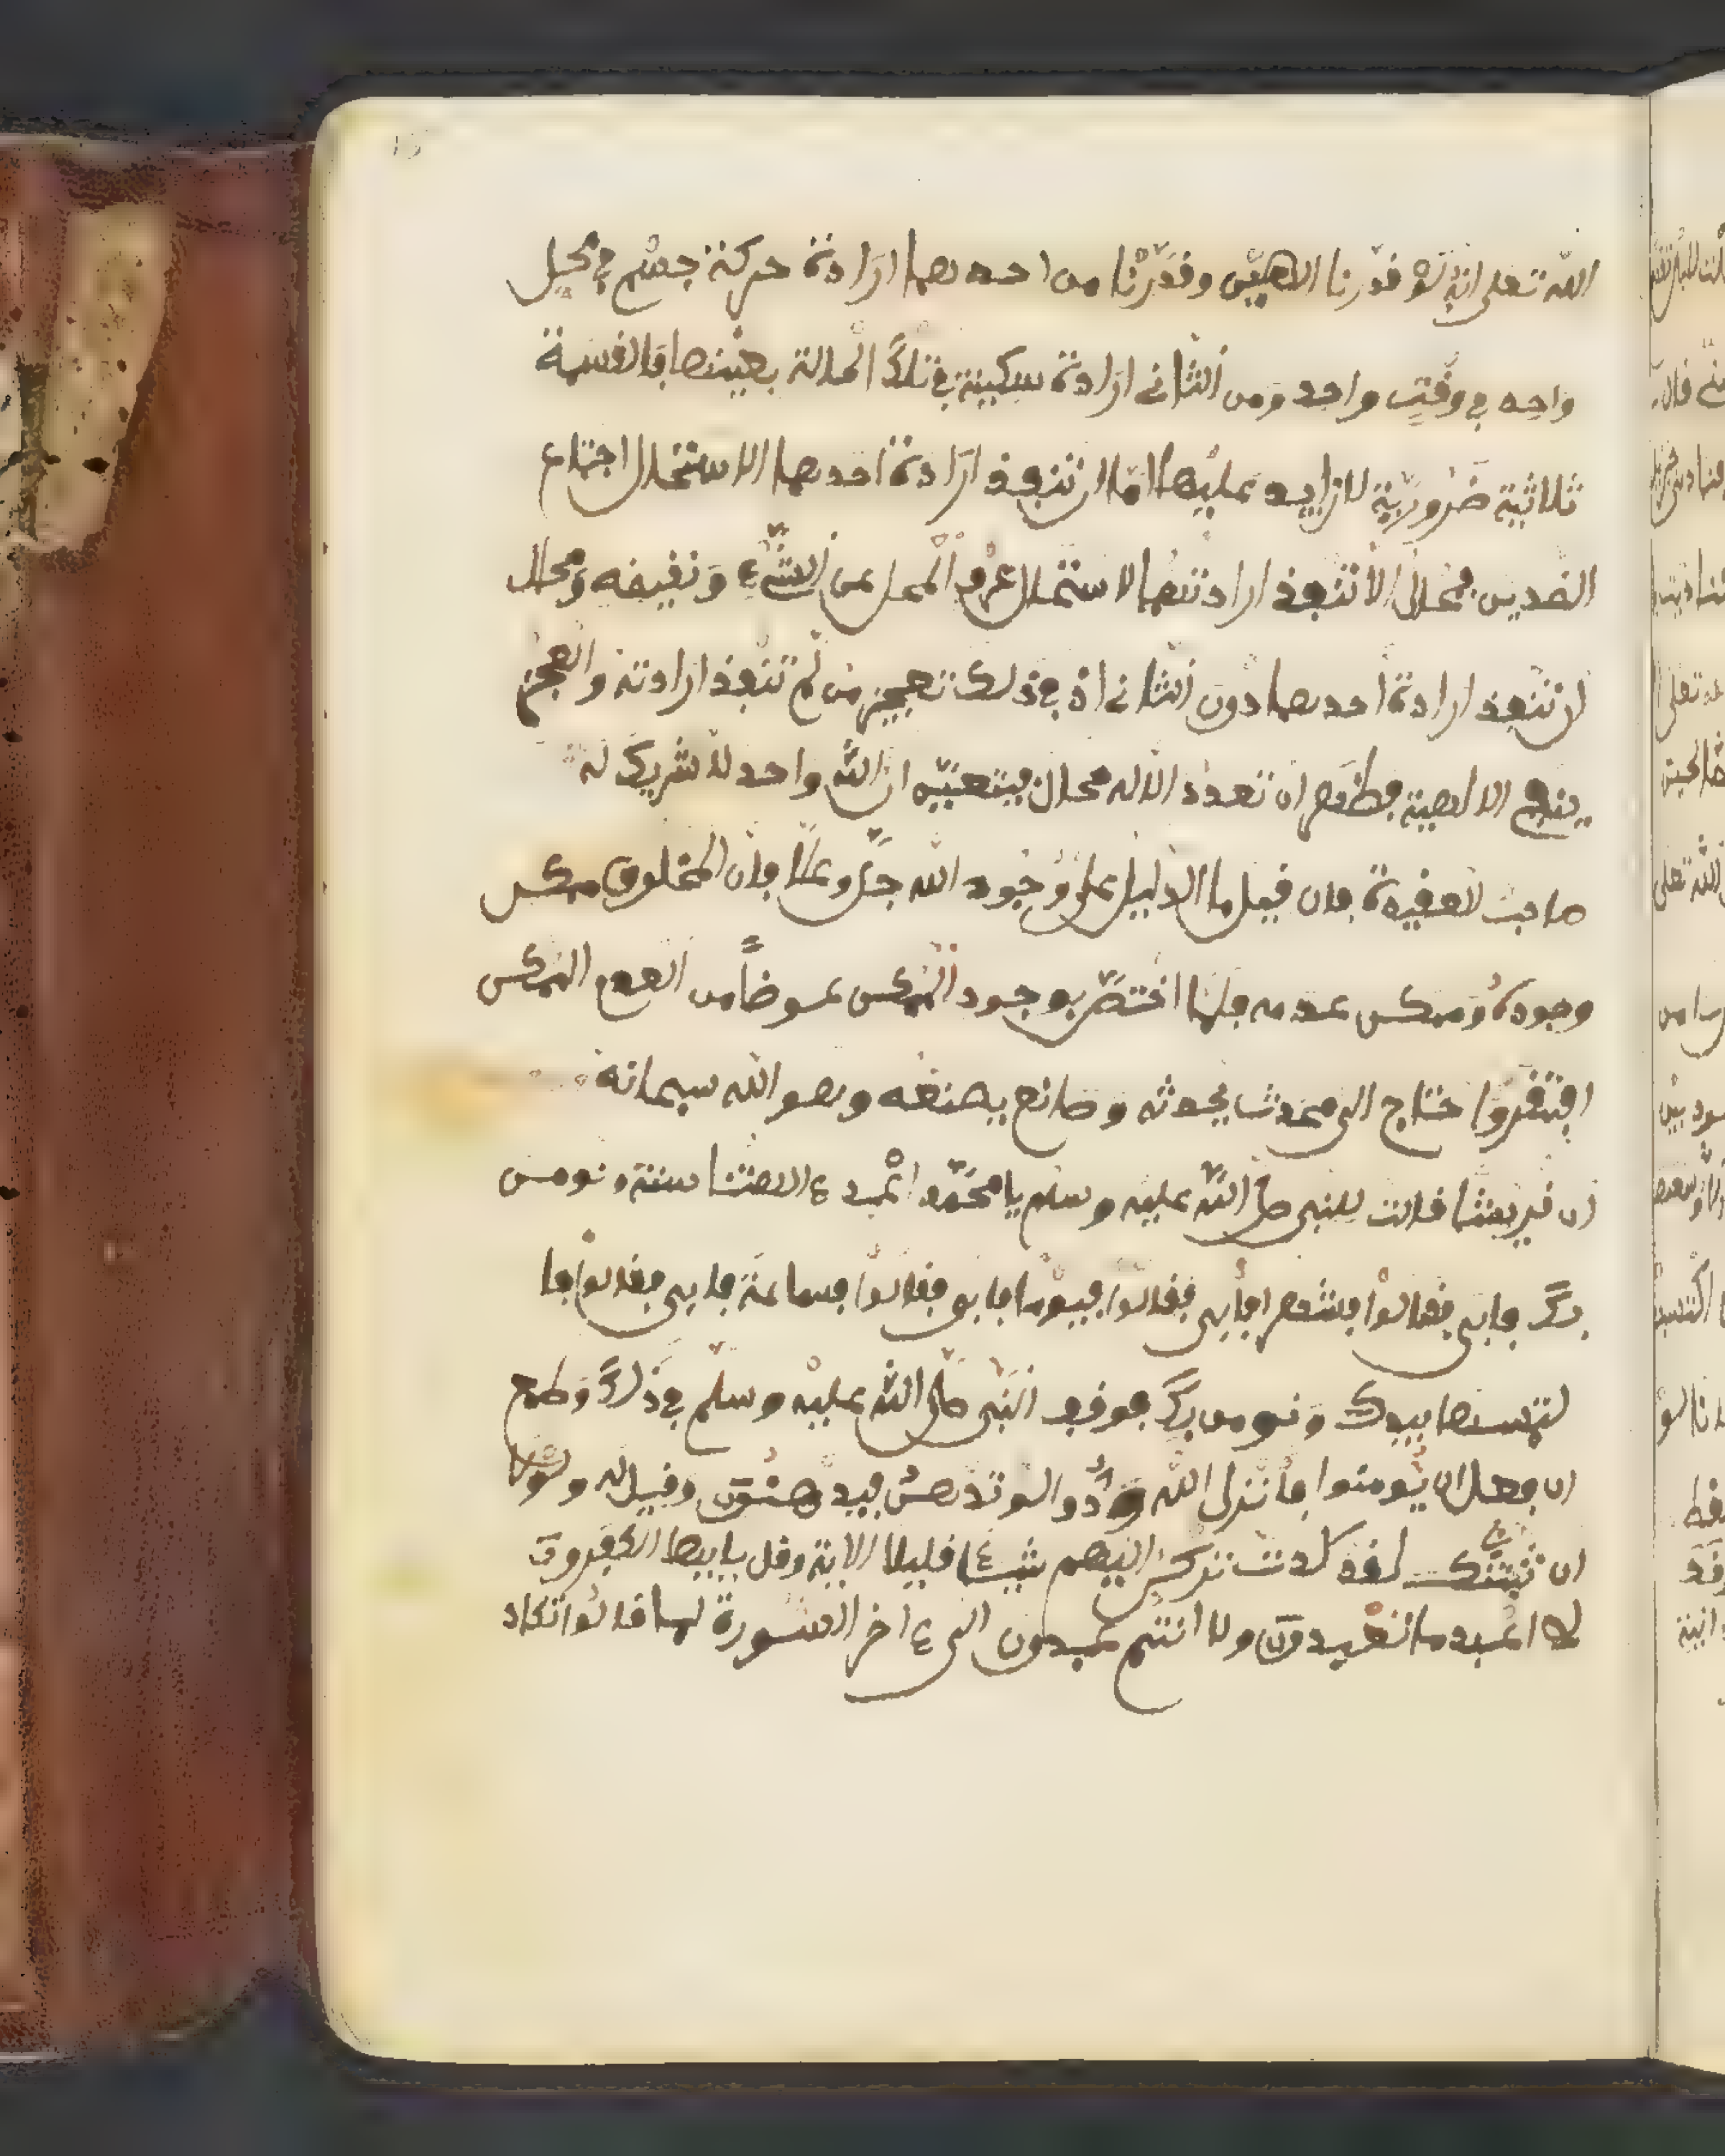 الله تعلى انه لو قدّرنا الاهيّن وقدّرنا من احدهما ارادة حركة جسم في محل
واحد في وقت واحد ومن الثاني ارادة سكينة في تلك الحالة بعينها فالقسمة
ثلاثية ضرورية لا زايد عليها اما ان تنفذ ارادة احدهما الاستحال اجتماع
الضدين محال الا تنفذ ارادتهما لاستحال عرو المحل عن الشيء ونقيضه ومحال
ان تنفذ ارادة احدهما دون الثاني اذ في ذلك تعجيز من لم تنفذ ارادته والعجز
ينفي الالهية فظهر ان تعدد الاله محال فيتعيّن ان الله واحد لا شريك له
العقيدة فان قيل ما الدليل على وجود الله جل وعلا فان المخلوق ممكن
وجوده وممكن عدمه فلما اختصّ بوجود الممكن عوضا من العدم الممكن
افتقر واحتاج الى محدث يحدثه وصانع يصنعه وهو الله سبحانه
ان قريشا قالت للنبي صلى الله عليه وسلم يا محمّد اعبد ءالهتنا سنة ونومن
بك فابى فقالوا فشهرا فابى فقالوا فيوما فابى فقالوا فساعة فابى فقالوا فا
لتمسها بيدك ونومن بك فوقف النبي صلى الله عليه وسلم في ذلك وطمع
ان فعل ان يومنوا فانزل الله ودّوا لو تدهن فيدهنون وقيل له ولولا
ان ثبتنك لقد كدت تركن اليهم شيئا قليلا الاية وقل يايها الكفرون
لا اعبد ما تعبدون ولا انتم عبدون الى ءاخر السورة لما قالوا اتكاد